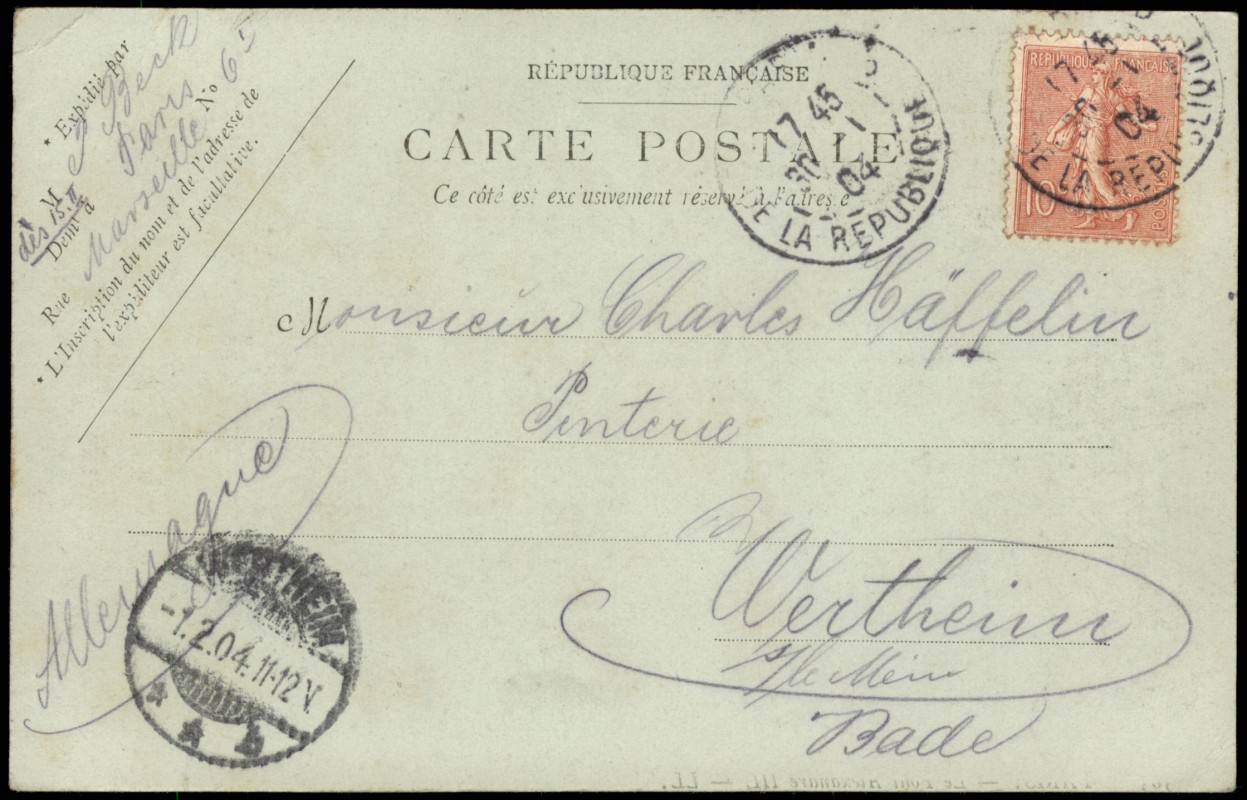 * Expédié par
M J Beck
dès 15.II
Demt à Paris
Rue Marseille No 6
* L'Inscription du nom et de l'adresse de
l'expéditeur est facultative.
RÉPUBLIQUE FRANÇAISE
CARTE POSTALE
Ce côté est exclusivement réservé à l'adresse
17 45
30 1
04
DE LA RÉPUBLIQUE
RÉPUBLIQUE FRANÇAISE
10
POSTES
17 45
30 1
04
DE LA RÉPUBLIQUE
Monsieur Charles Häffelin
Pinterie
Allemagne
Wertheim
s/le Mein
Bade
WERTHEIM
-1.2.04.11-12V.
PARIS. — Le Pont Alexandre III. — LL.